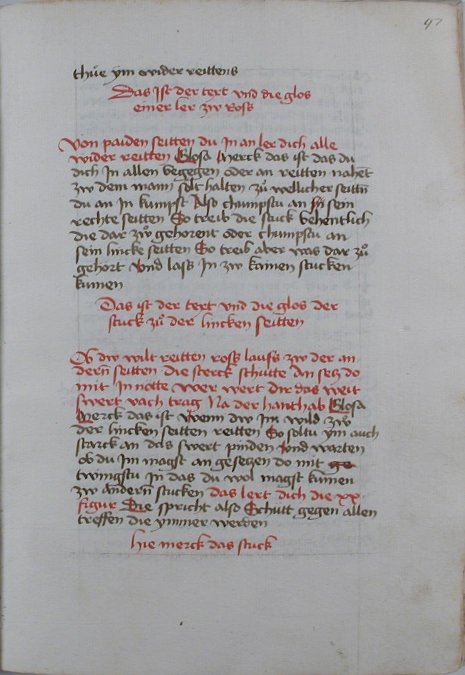 47
thüe ym wider reittens
Das ist der text und die glos
einer ler zw Ross
Von paiden seitten du In an ler dich alle
wider reitten Glosa Merck das ist das du
dich In allen begegen oder an reitten nahet
zw dem mann solt halten zů wellicher seittñ
du an In kumpst Also chumpstu an sein
rechte seitten So treib die stuck behentlich
die dar zů gehorent oder chumpstu an
sein lincke seitten So treib aber was dar zů
gehort Vnd lass In zw kainen stucken
kumen
Das ist der text vnd die glos der
stuck zů der lincken seitten
Ob dw wilt reitten ross lauffs zw der an
dern seitten die sterck schütte dar seczdo
mit In notte woer wert dir das weit
swert nach trag Na der hanthab Glosa
Merck das ist Wenn dw Im wild zw
der lincken seitten reitten So soltu ym auch
starck an das swert pinden Vnd warten
ob du Im magst an gesetzen do mit
twingstu In das du wol magst kumen
zw andern stucken das lert dich die xx
figur Die spricht also Schütt gegen allen
treffen die ymmer werden
hie merck das stuck